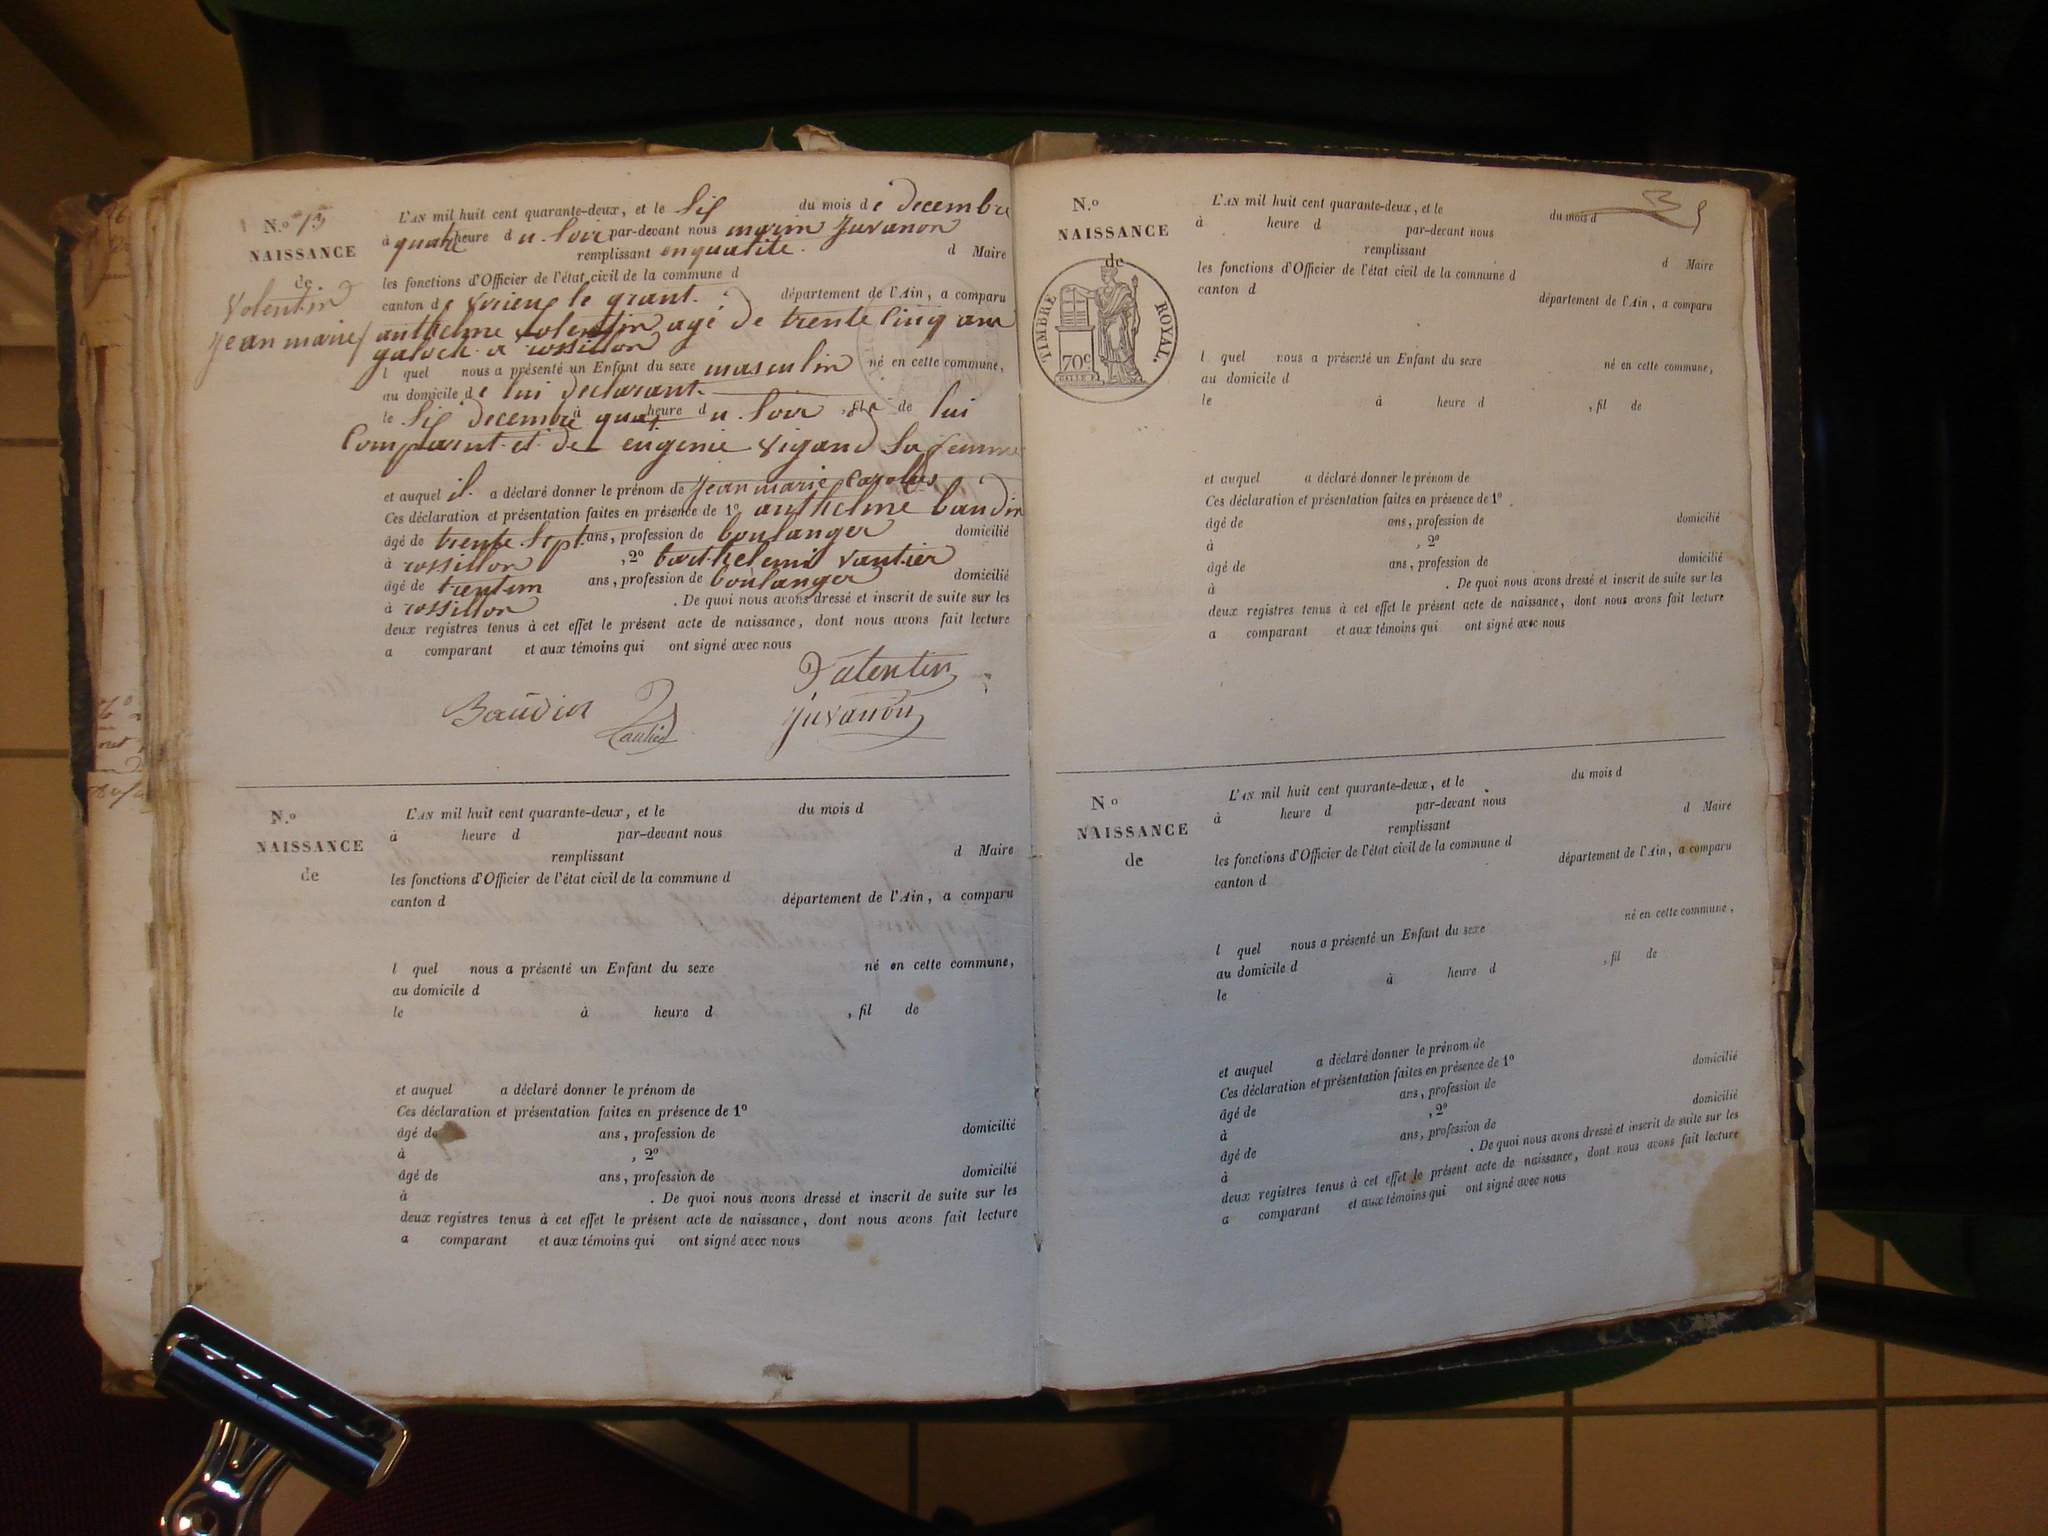 N.º 13
NAISSANCE
de
Volentin
jean marie
L'AN mil huit cent quarante-deux, et le Sif du mois de decembre
à quatre heure du Soir par-devant nous marin Juvanon
remplissant en qualité d Maire
les fonctions d'Officier de l'état civil de la commune d
canton de virieu le grant. département de l'Ain, a comparu
anthelme volentin agé de trente Cinq ans
à rossillon
l quel nous a présenté un Enfant du sexe masculin né en cette commune,
au domicile de lui declarant.
le Sif decembre à quatr heure du Soir, fil de lui
Comparant et de eugenie vigand Sa femme
et auquel il a déclaré donner le prénom de jean marie
Ces déclaration et présentation faites en présence de 1º anthelme baudin
âgé de trente Sept ans, profession de boulanger domicilié
à rossillon, 2º barthelemi vautier
âgé de trentun ans, profession de boulanger domicilié
à rossillon. De quoi nous avons dressé et inscrit de suite sur les
deux registres tenus à cet effet le présent acte de naissance, dont nous avons fait lecture
a comparant et aux témoins qui ont signé avec nous
Valentin
Baudin
Juvanon
N.º
NAISSANCE
de
L'AN mil huit cent quarante-deux, et le du mois d
à heure d par-devant nous
remplissant d Maire
les fonctions d'Officier de l'état civil de la commune d
canton d département de l'Ain, a comparu
l quel nous a présenté un Enfant du sexe né en cette commune,
au domicile d
le à heure d , fil de
et auquel a déclaré donner le prénom de
Ces déclaration et présentation faites en présence de 1º
âgé de ans, profession de domicilié
à , 2º
âgé de ans, profession de domicilié
à . De quoi nous avons dressé et inscrit de suite sur les
deux registres tenus à cet effet le présent acte de naissance, dont nous avons fait lecture
a comparant et aux témoins qui ont signé avec nous
N.º
NAISSANCE
de
TIMBRE ROYAL.
70c
L'AN mil huit cent quarante-deux, et le du mois d
à heure d par-devant nous
remplissant d Maire
les fonctions d'Officier de l'état civil de la commune d
canton d département de l'Ain, a comparu
l quel nous a présenté un Enfant du sexe né en cette commune,
au domicile d
le à heure d , fil de
et auquel a déclaré donner le prénom de
Ces déclaration et présentation faites en présence de 1º
âgé de ans, profession de domicilié
à , 2º
âgé de ans, profession de domicilié
à . De quoi nous avons dressé et inscrit de suite sur les
deux registres tenus à cet effet le présent acte de naissance, dont nous avons fait lecture
a comparant et aux témoins qui ont signé avec nous
Nº
NAISSANCE
de
L'AN mil huit cent quarante-deux, et le du mois d
à heure d par-devant nous
remplissant d Maire
les fonctions d'Officier de l'état civil de la commune d
canton d département de l'Ain, a comparu
l quel nous a présenté un Enfant du sexe né en cette commune,
au domicile d
le à heure d , fil de
et auquel a déclaré donner le prénom de
Ces déclaration et présentation faites en présence de 1º
âgé de ans, profession de domicilié
à , 2º
âgé de ans, profession de domicilié
à . De quoi nous avons dressé et inscrit de suite sur les
deux registres tenus à cet effet le présent acte de naissance, dont nous avons fait lecture
a comparant et aux témoins qui ont signé avec nous